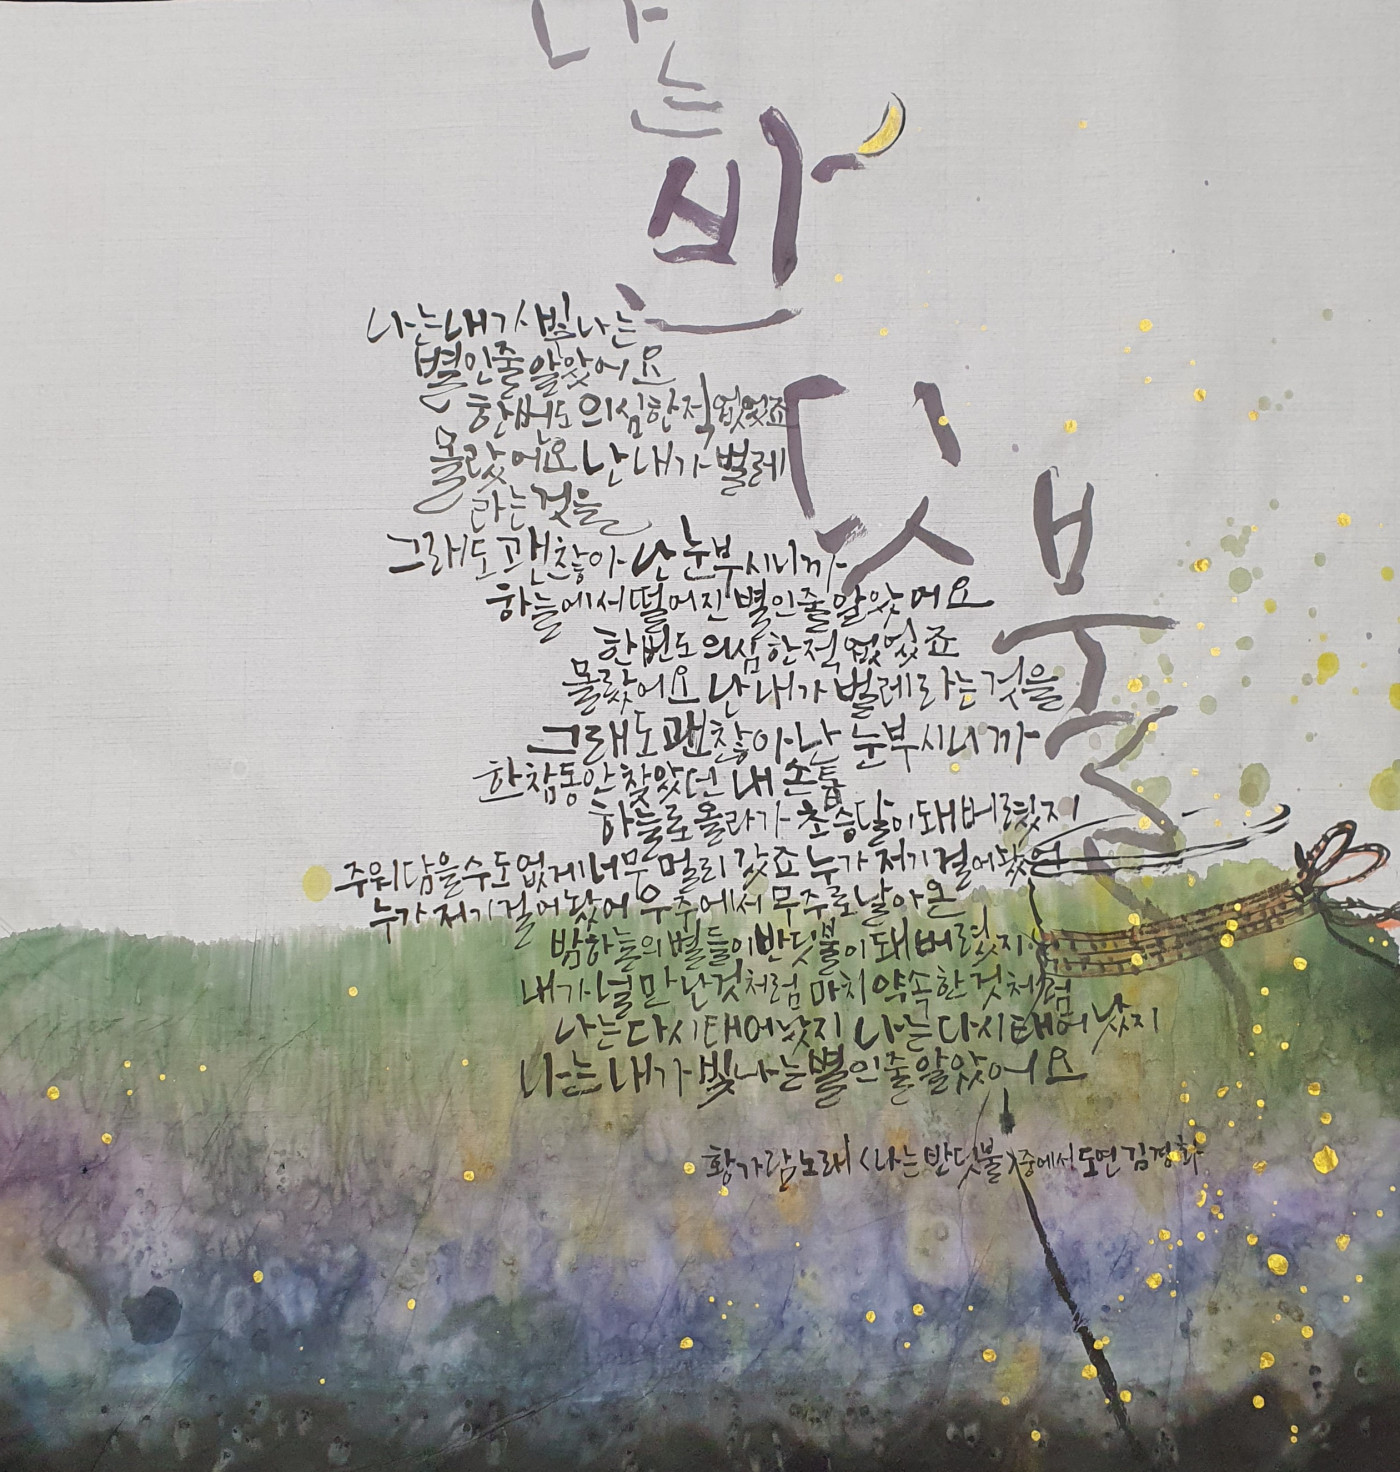 나는
반
딧
불
나는 내가 빛나는
별인 줄 알았어요
한번도 의심한 적 없었죠
몰랐어요 난 내가 벌레
라는 것을
그래도 괜찮아 난 눈부시니까
하늘에서 떨어진 별인 줄 알았어요
한번도 의심한 적 없었죠
몰랐어요 난 내가 벌레라는 것을
그래도 괜찮아 난 눈부시니까
한참동안 찾았던 내 손톱
하늘로 올라가 초승달이 돼 버렸지
주워담을 수도 없게 너무 멀리 갔죠 누가 저기 걸어놨어
누가 저기 걸어놨어 우주에서 무주로 날아온
밤하늘의 별들이 반딧불이 돼 버렸지
내가 널 만난 것처럼 마치 약속한 것처럼
나는 다시 태어났지 나는 다시 태어났지
나는 내가 빛나는 별인 줄 알았어요
황가람 노래 <나는 반딧불> 중에서 도연 김경화